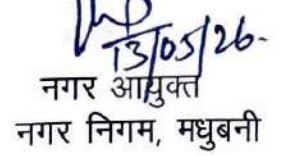 13/05/26.
नगर आयुक्त
नगर निगम, मधुबनी